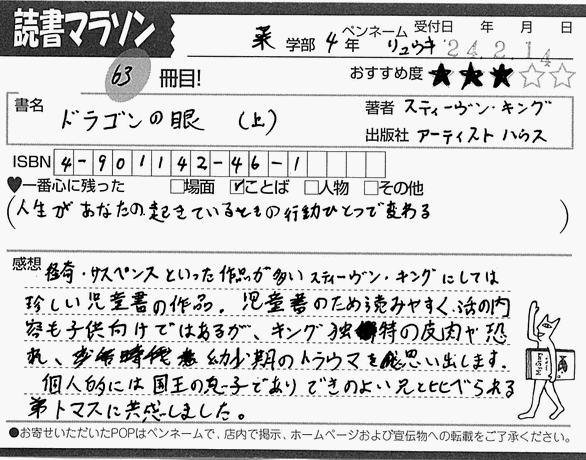 読書マラソン
薬 学部 4 年 ペンネーム リュウキ 受付日 年 月 日
'24.2.14
63 冊目! おすすめ度 ★★★☆☆
書名 ドラゴンの眼 (上)
著者 スティーヴン・キング
出版社 アーティストハウス
ISBN 4-901142-46-1
♥一番心に残った □場面 ☑ことば □人物 □その他
(人生があなたの起きているときの行動ひとつで変わる)
感想 怪奇・サスペンスといった作品が多いスティーヴン・キングにしては
珍しい児童書の作品。児童書のため読みやすく、話の内
容も子供向けではあるが、キング独特の皮肉や恐
れ、幼少期のトラウマを思い出します。
個人的には国王の息子でありできのよい兄と比べられる
弟トマスに共感しました。
●お寄せいただいたPOPはペンネームで、店内で掲示、ホームページおよび宣伝物への転載をご了承ください。